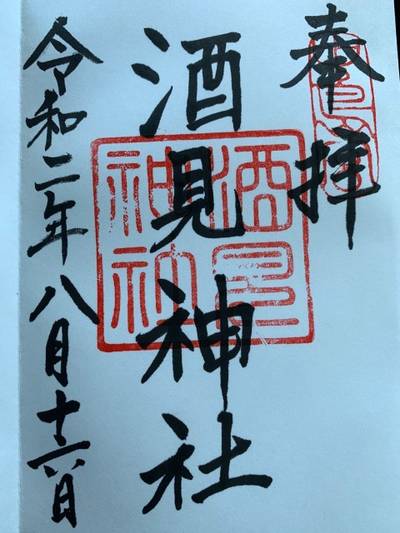 奉拝
酒見神社
酒見神社
令和二年八月十六日